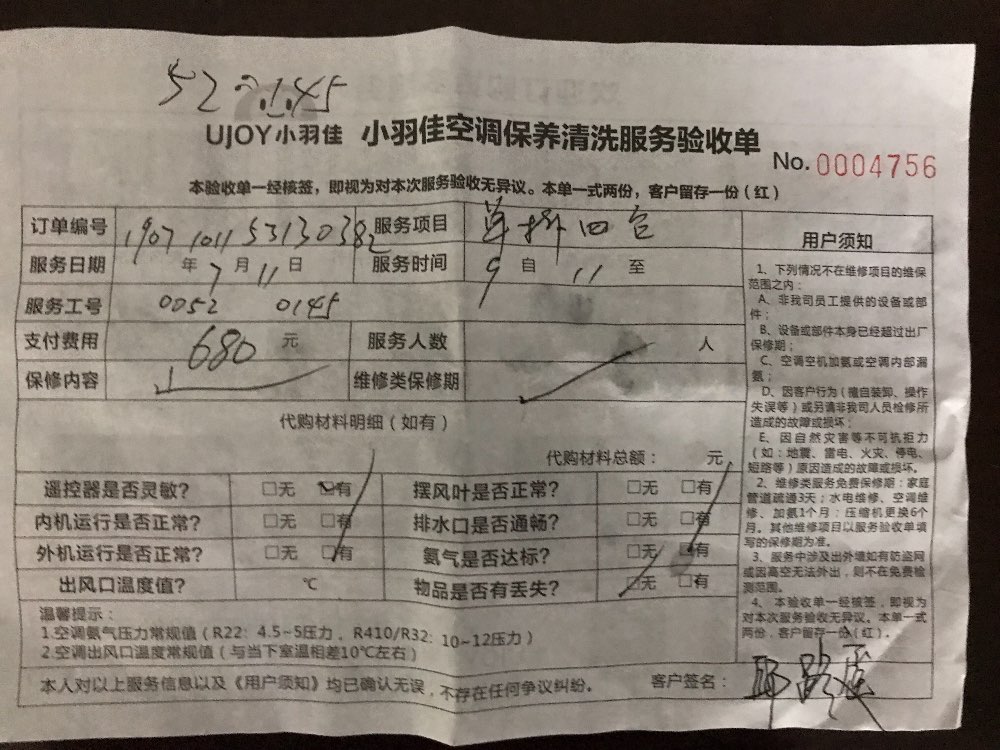 52
UJOY小羽佳 小羽佳空调保养清洗服务验收单
No. 0004756
本验收单一经核签，即视为对本次服务验收无异议。本单一式两份，客户留存一份（红）
订单编号 1907101153130382 服务项目 单拆四台 用户须知
服务日期 年7月11日 服务时间 9 自 11 至
服务工号 0052 0145
支付费用 680 元 服务人数 人
保修内容 维修类保修期
代购材料明细（如有）
代购材料总额： 元
遥控器是否灵敏? □无 □有 摆风叶是否正常? □无 □有
内机运行是否正常? □无 □有 排水口是否通畅? □无 □有
外机运行是否正常? □无 □有 氨气是否达标? □无 □有
出风口温度值? ℃ 物品是否有丢失? □无 □有
温馨提示：
1.空调氨气压力常规值（R22：4.5~5压力，R410/R32：10~12压力）
2.空调出风口温度常规值（与当下室温相差10℃左右）
本人对以上服务信息以及《用户须知》均已确认无误，不存在任何争议纠纷。 客户签名：
1、下列情况不在维修项目的维保
范围之内：
A、非我司员工提供的设备或部
件；
B、设备或部件本身已经超过出厂
保修期；
C、空调空机加氨或空调内部漏
氨；
D、因客户行为（擅自装卸、操作
失误等）或另请非我司人员检修所
造成的故障或损坏；
E、因自然灾害等不可抗拒力
（如：地震、雷电、火灾、停电、
短路等）原因造成的故障或损坏。
2、维修类服务免费保修期：家庭
管道疏通3天；水电维修、空调维
修、加氨1个月；压缩机更换6个
月。其他维修项目以服务验收单填
写的保修期为准。
3、服务中涉及出外墙如有防盗网
或因高空无法外出，则不在免费检
测范围。
4、本验收单一经核签，即视为
对本次服务验收无异议。本单一式
两份，客户留存一份（红）。